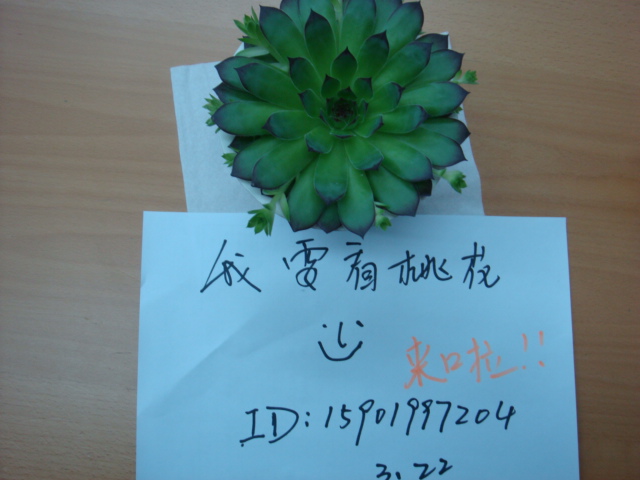 我要看桃花
来口拉!!
ID:15901997204
3.22